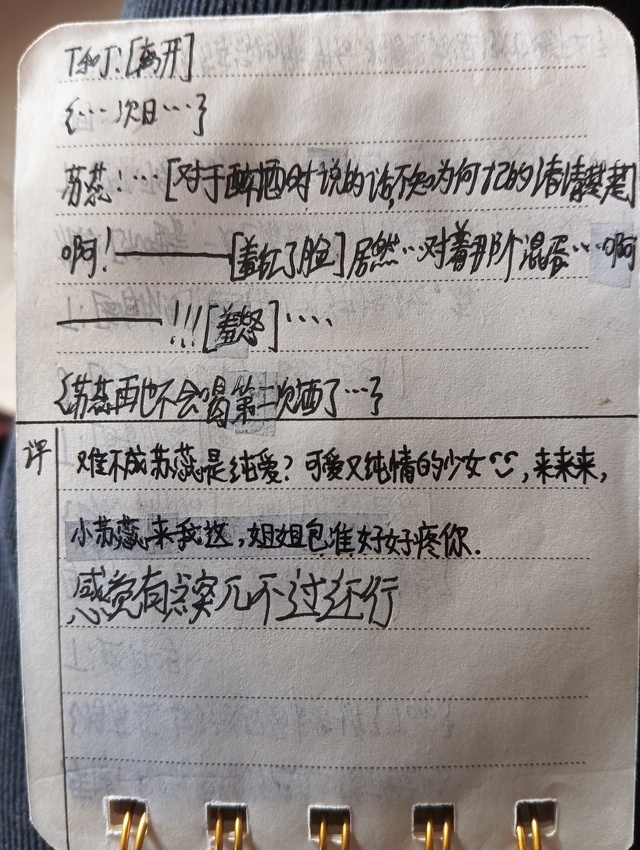 T和J：[离开]
{…次日…}
苏蕊！…[对于醉酒时说的话，不知为何记的清清楚楚]
啊！——[羞红了脸]居然…对着那个混蛋…啊
——！！！[羞怒]····
{苏蕊再也不会喝第二次酒了…}
评
难不成苏蕊是纯爱？可爱又纯情的少女，来来来，
小苏蕊来我这，姐姐包准好好疼你.
感觉有点突兀不过还行